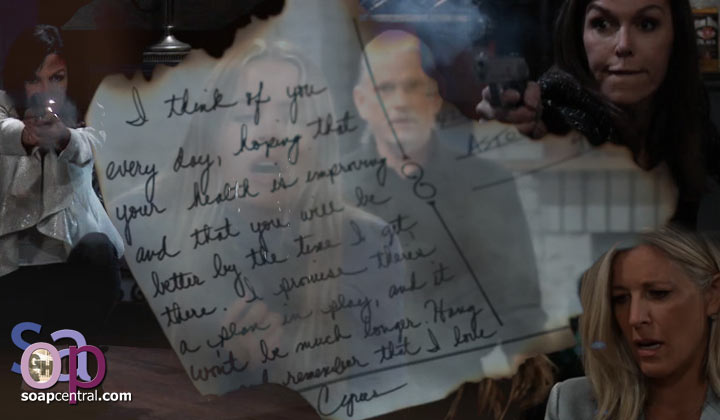 I think of you
every day, hoping that
your health is improving
and that you will be
better by the time I get
there. I promise there's
a plan in play, and it
won't be much longer. Hang
remember that I love
Cyrus
sa
GH
op
soapcentral.com